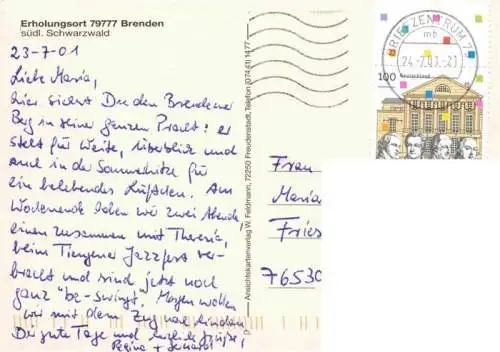 Erholungsort 79777 Brenden
südl. Schwarzwald
23-7-01
Liebe Maria,
hier siehst Du den Brendener
Berg in seiner ganzen Pracht! er
steht für Weite, Überblick und
auch in der Sommerhitze für
ein belebendes Lüftchen. Am
Wochenende haben wir zwei Abende
einen zusammen mit Theresia,
beim Tiengener Jazzfest ver-
bracht und sind jetzt noch
ganz "be-swingt". Morgen wollen
wir mit dem Zug nach Lindau
Dir gute Tage und herzliche Grüße!
Regina + Gerhard
Ansichtskartenverlag W. Feldmann, 72250 Freudenstadt, Telefon (07441) 1477
BRIEFZENTRUM 7
mb
24.-7.01.-21
100
Deutschland
Frau
Maria
Fries
76530